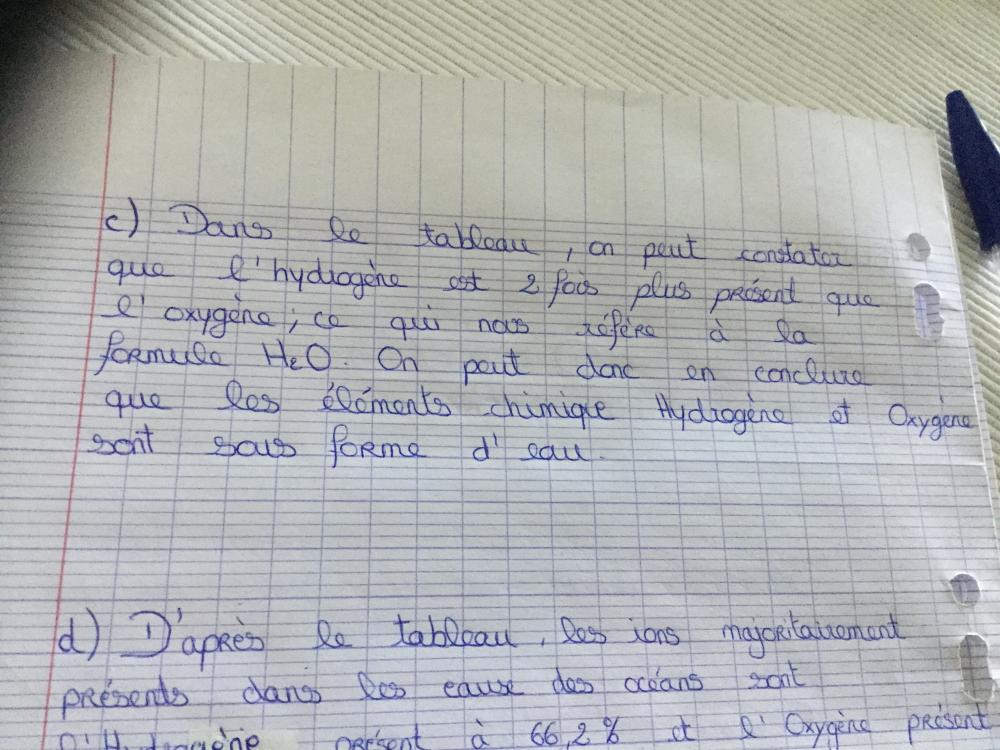 c) Dans le tableau, on peut constater
que l'hydrogène est 2 fois plus présent que
l'oxygène; ce qui nous réfère à la
formule H₂O. On peut donc en conclure
que les éléments chimique Hydrogène et Oxygène
sont sous forme d'eau.
d) D'après le tableau, les ions majoritairement
présents dans les eause des océans sont
l'Hydrogène présent à 66,2% et l'Oxygène présent